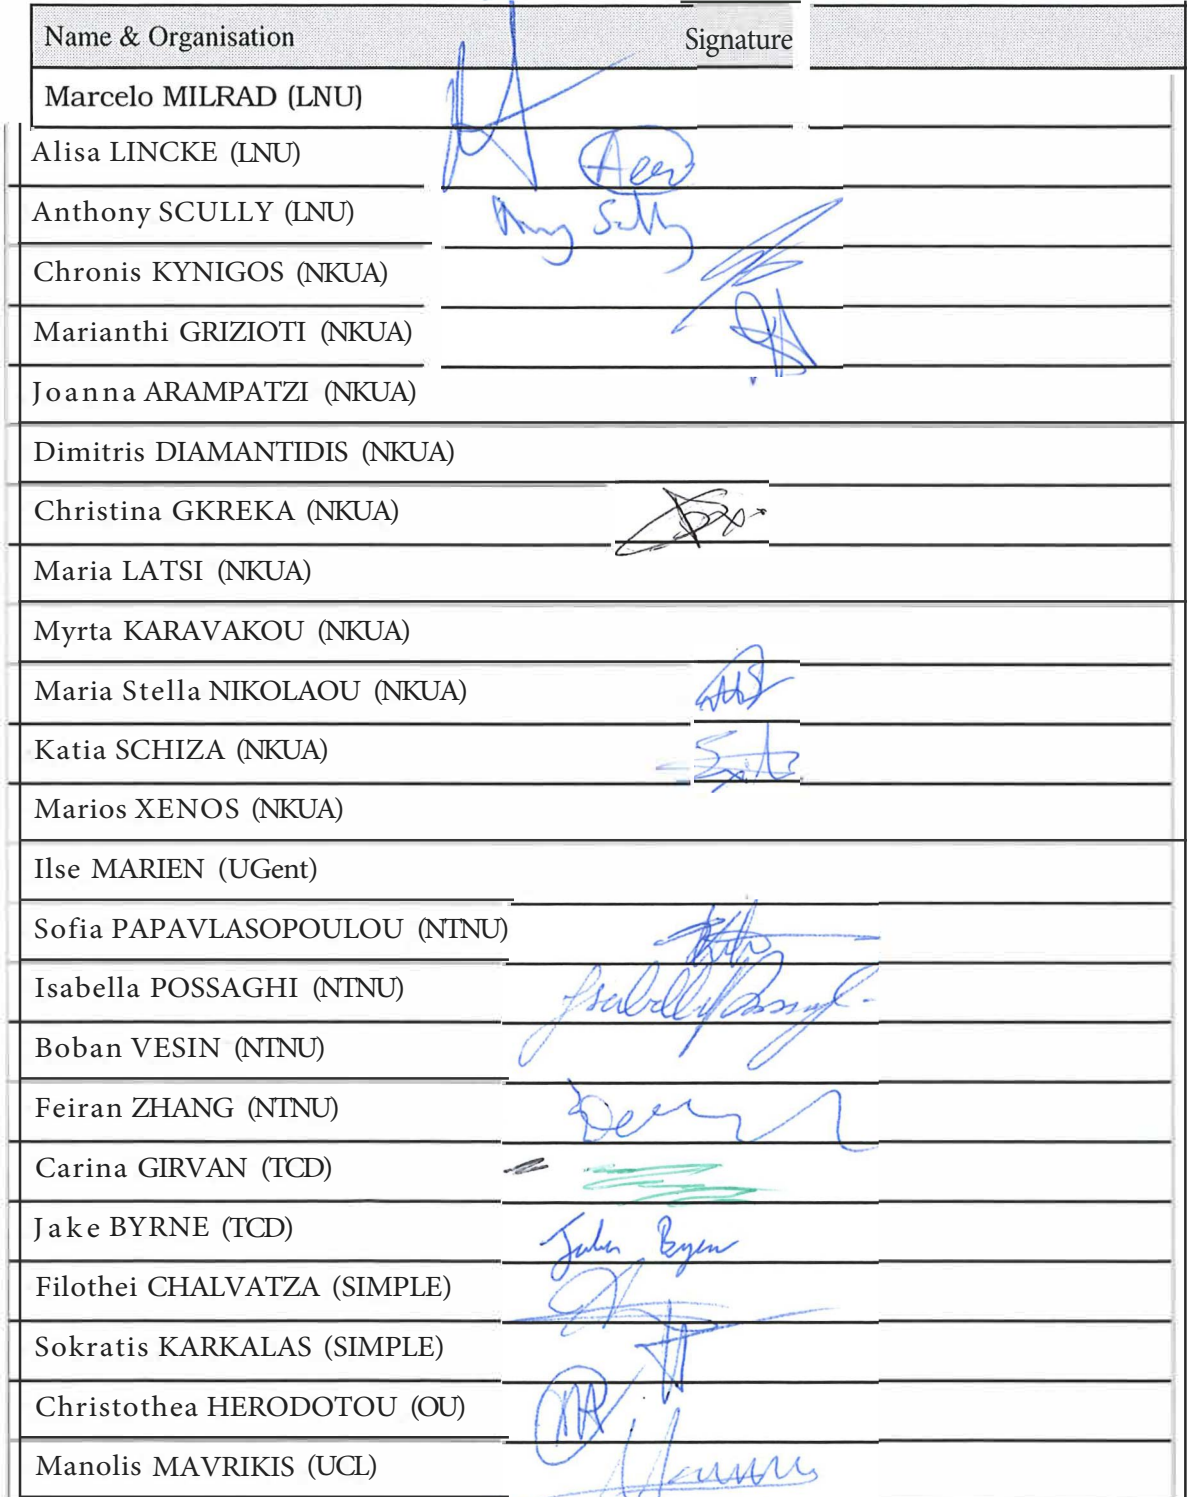 Name & Organisation Signature
Marcelo MILRAD (LNU)
Alisa LINCKE (LNU)
Anthony SCULLY (LNU)
Chronis KYNIGOS (NKUA)
Marianthi GRIZIOTI (NKUA)
Joanna ARAMPATZI (NKUA)
Dimitris DIAMANTIDIS (NKUA)
Christina GKREKA (NKUA)
Maria LATSI (NKUA)
Myrta KARAVAKOU (NKUA)
Maria Stella NIKOLAOU (NKUA)
Katia SCHIZA (NKUA)
Marios XENOS (NKUA)
Ilse MARIEN (UGent)
Sofia PAPAVLASOPOULOU (NTNU)
Isabella POSSAGHI (NTNU)
Boban VESIN (NTNU)
Feiran ZHANG (NTNU)
Carina GIRVAN (TCD)
Jake BYRNE (TCD)
Filothei CHALVATZA (SIMPLE)
Sokratis KARKALAS (SIMPLE)
Christothea HERODOTOU (OU)
Manolis MAVRIKIS (UCL)